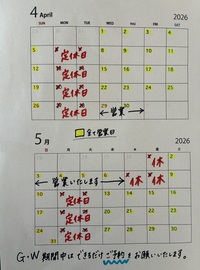 4 April 2026
SUN MON TUE WED THU FRI SAT
1 2 3 4
5 6 7 8 9 10 11
定休日
12 13 14 15 16 17 18
定休日
19 20 21 22 23 24 25
定休日
26 27 28 29 30
定休日 営業
全て営業日
5 月 2026
1 2
休
3 4 5 6 7 8 9
営業いたします 休 休
10 11 12 13 14 15 16
定休日
17 18 19 20 21 22 23
定休日
定休日
G・W期間中はできるだけご予約をお願いいたします。